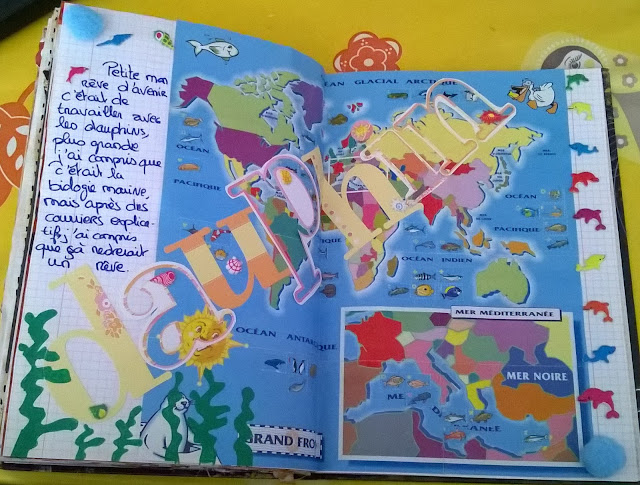 Petite mon
rêve d'avenir
c'était de
travailler avec
les dauphins,
plus grande
j'ai compris que
c'était la
biologie marine,
mais après des
courriers explica-
tifs, j'ai compris
que ça resterait
un rêve.
dauphin
OCÉAN GLACIAL ARCTIQUE
OCÉAN
PACIFIQUE
OCÉAN
PACIFIQUE
OCÉAN INDIEN
OCÉAN
GRAND
MER MÉDITERRANÉE
MER NOIRE